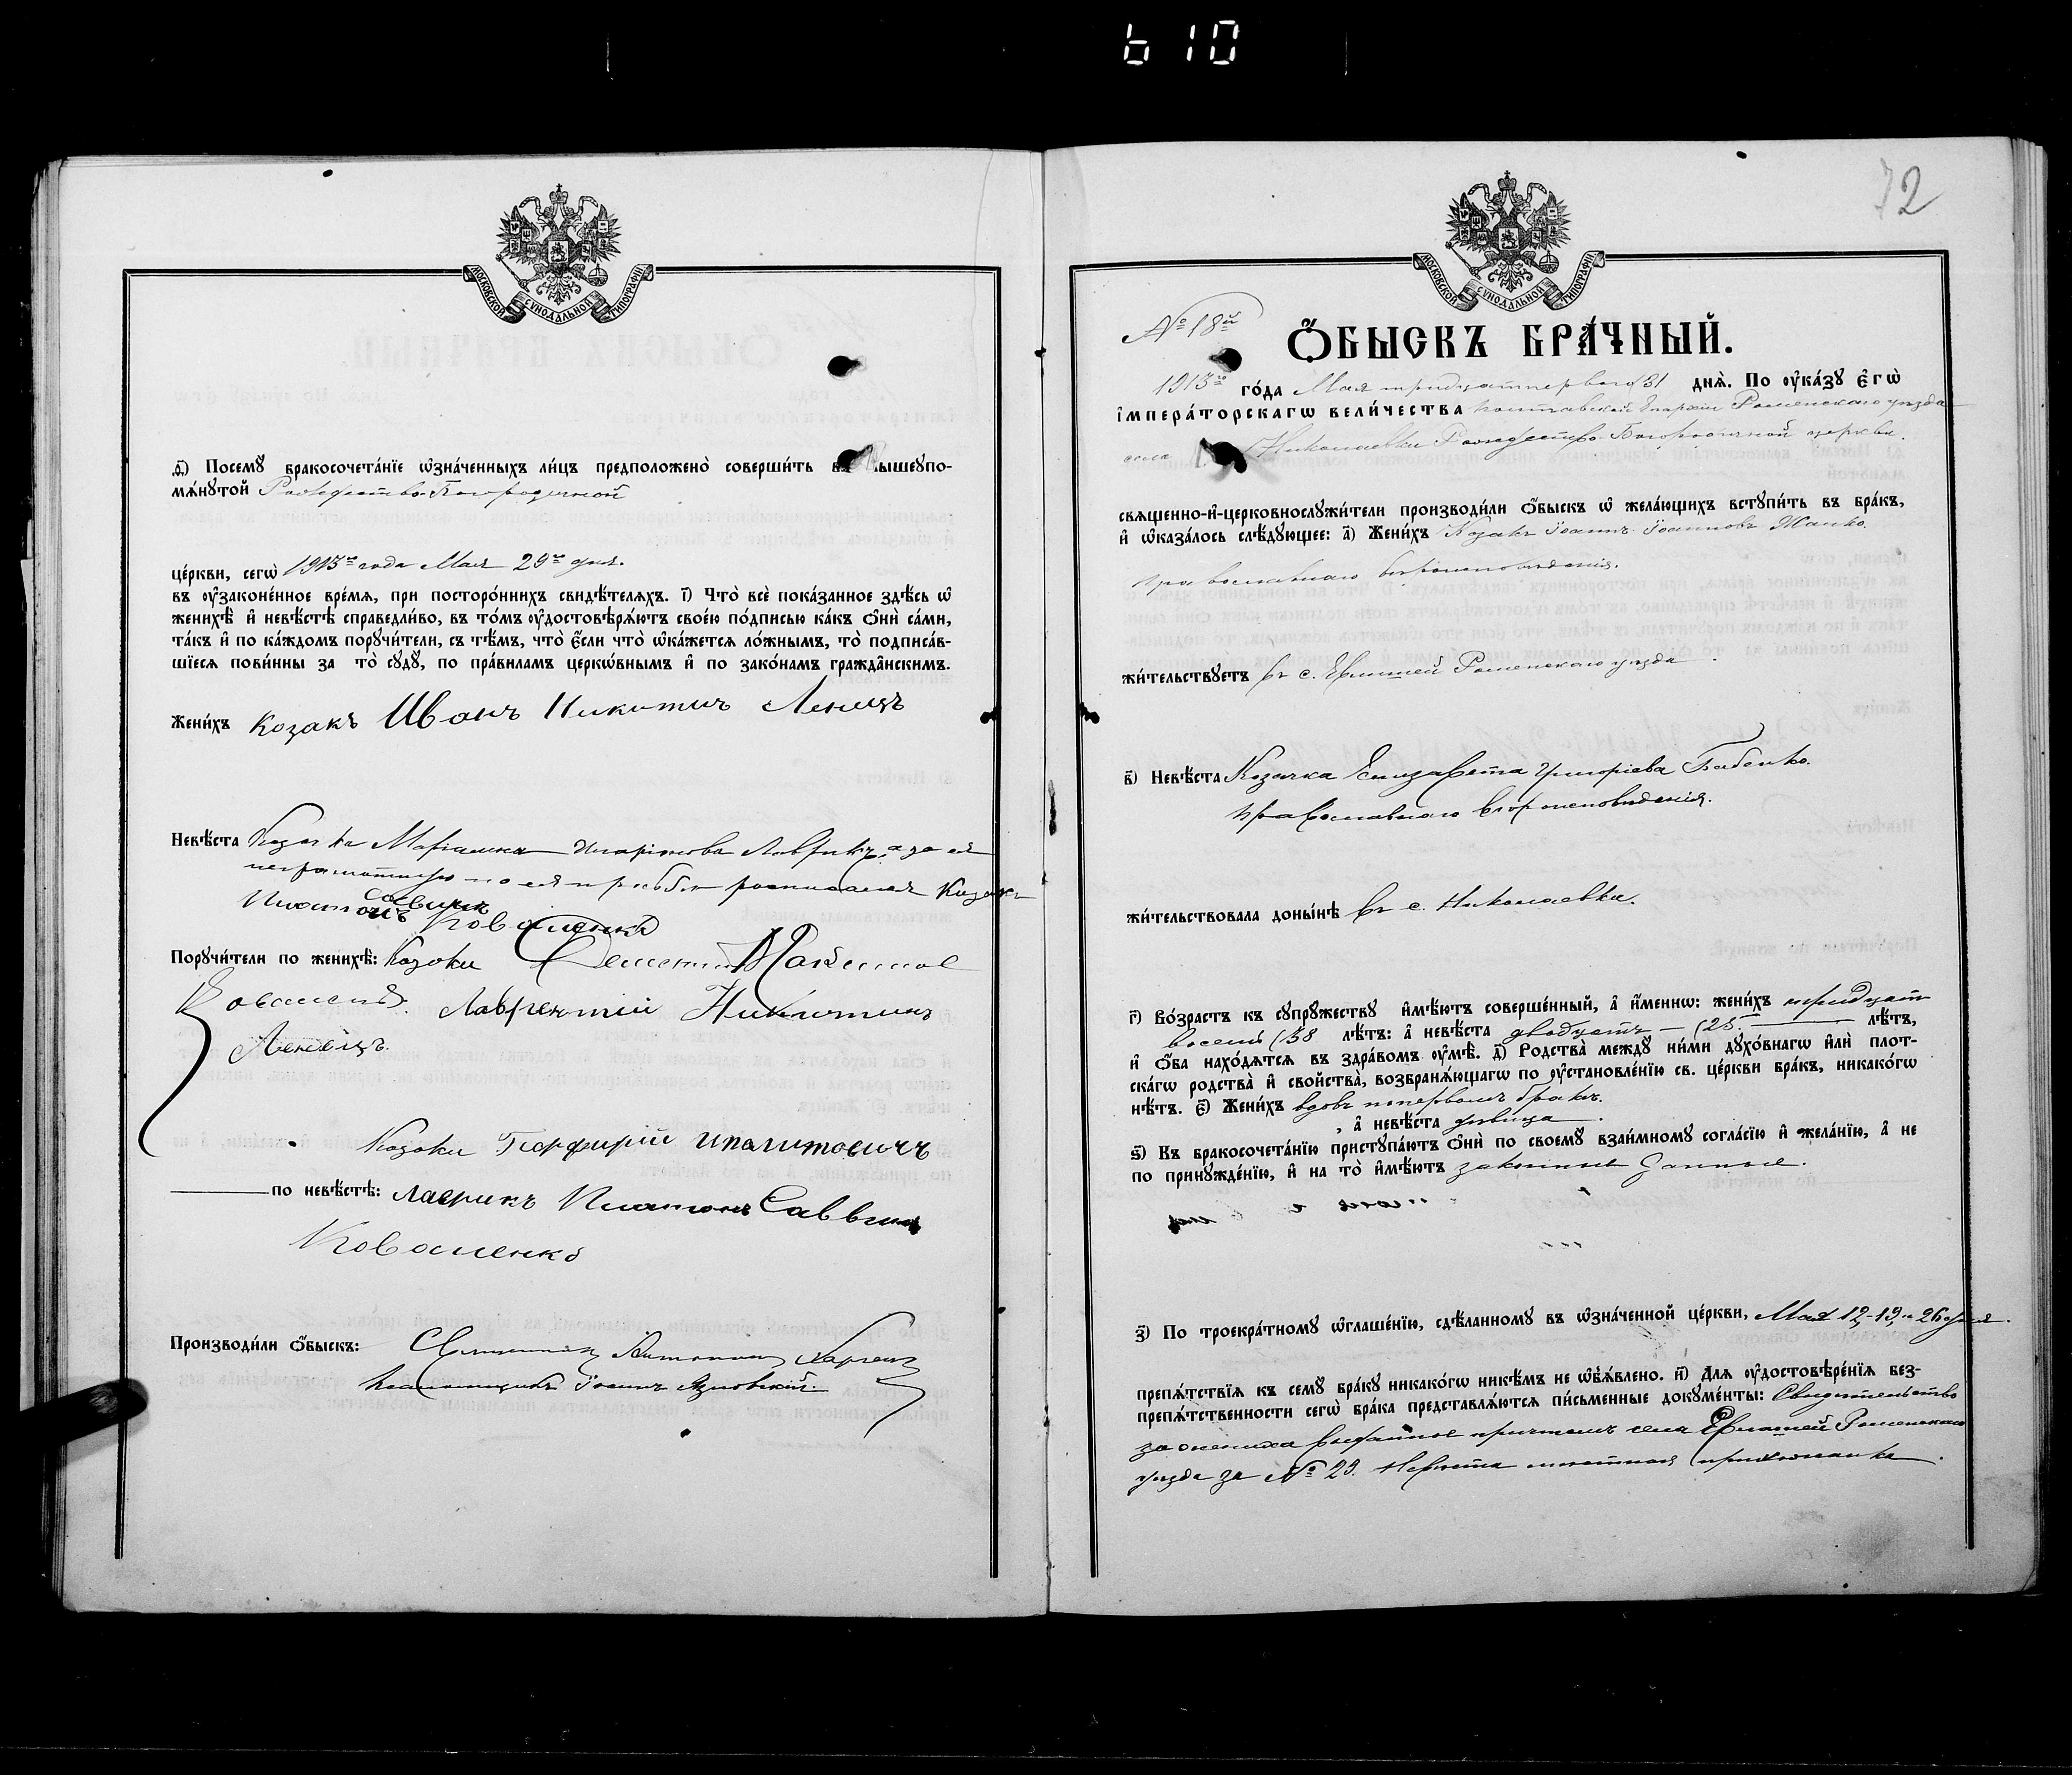 610
МОСКОВСКОЙ СѴНОДАЛЬНОЙ ТИПОГРАФІИ
ѳ҃) Посемꙋ̀ бракосочета́нїе ѡ҆зна́ченныхъ ли́цъ предположено̀ соверши́ть въ вышеꙋпо-
мѧ́нꙋтой Рождество-Богородичной
це́ркви, сегѡ̀ 1913го года Мая 29го дня.
въ ᲂу҆зако́ненное вре́мѧ, при посторо́ннихъ свидѣ́телѧхъ. і҃) Что̀ всѐ пока́занное здѣ́сь ѡ҆
женихѣ̀ и҆ невѣ́стѣ справедли́во, въ то́мъ ᲂу҆достовѣрѧ́ютъ свое́ю по́дписью ка́къ Ѻ҆нѝ са́ми,
та́къ и҆ по ка́ждомъ порꙋчи́тели, съ тѣ́мъ, что̀ є҆́сли что̀ ѡ҆ка́жетсѧ ло́жнымъ, то̀ подписа́в-
шїесѧ пови́нны за то̀ сꙋдꙋ̀, по пра́виламъ церкѡ́внымъ и҆ по зако́намъ гражда̑нскимъ.
Жени́хъ Козакъ Иванъ Никитич Ленецъ
Невѣ́ста Козачка Лаврикъ, а за ея
неграмотную по ея прозьбе росписался Козакъ
Платонъ Саввич Коваленко
Порꙋчи́тели по женихѣ̀: Козаки
Коваленко. Лаврентий Никитинъ
Ленецъ.
Козаки Порфирій Иполитовичъ
по невѣ́стѣ: Лаврикъ Платонъ Саввич
Коваленко
Производи́ли Ѻ҆́быскъ: Священникъ
Псаломщикъ Іоаннъ
72
МОСКОВСКОЙ СѴНОДАЛЬНОЙ ТИПОГРАФІИ
№ 18й
Ѻ҆́БЫСКЪ БРА́ЧНЫЙ.
1913го го́да Мая тридцатперваго 31 днѧ̀. По ᲂу҆ка́зꙋ Є҆гѡ̀
і҆мпера́торскагѡ вели́чества Полтавской Епархіи Роменскаго уѣзда
села Николаевки Рождество-Богородичной церкви.
свѧщенно-и҆-церковнослꙋжи́тели производи́ли Ѻ҆́быскъ ѡ҆ жела́ющихъ встꙋпи́ть въ бра́къ,
и҆ ѡ҆каза́лось слѣ́дꙋющее: а҃) Жени́хъ Козакъ Іоаннъ Іоанновъ
православнаго вѣроисповѣданія.
жи́тельствꙋетъ въ с. Роменскаго уѣзда.
в҃) Невѣ́ста Козачка Елизавета Григоріева Бабенко.
православнаго вѣроисповѣданія.
жи́тельствовала доны́нѣ въ с. Николаевки.
г҃) Во́зрастъ къ сꙋпрꙋ́жествꙋ и҆мѣ́ютъ соверше́нный, а҆ и҆́меннѡ: жени́хъ тридцать
восемь (38 лѣ́тъ: а҆ невѣ́ста двадцать — (25. — лѣ́тъ,
и҆ Ѻ҆́ба нахо́дѧтсѧ въ здра́вомъ ᲂу҆мѣ̀. д҃) Родства̀ междꙋ̀ ни́ми дꙋхо́внагѡ и҆лѝ плот-
ска́гѡ родства̀ и҆ свойства̀, возбранѧ́ющагѡ по ᲂу҆становле́нїю св. це́ркви бра́къ, никако́гѡ
нѣ́тъ. є҃) Жени́хъ вдовъ поперволъ бракѣ.
, а҆ невѣ́ста дѣвица.
ѕ҃) Къ бракосочета́нїю пристꙋпа́ютъ Ѻ҆нѝ по своемꙋ̀ взаи́мномꙋ согла́сїю и҆ жела́нїю, а҆ не
по принꙋжде́нїю, и҆ на то̀ и҆мѣ́ютъ законные данные.
з҃) По троекра́тномꙋ ѡ҆глаше́нїю, сдѣ́ланномꙋ въ ѡ҆зна́ченной це́ркви, Мая 12,-19, и 26 дня.
препѧ́тствїѧ къ семꙋ̀ бра́кꙋ никако́гѡ никѣ́мъ не ѡ҆б̾ѧ́влено. и҃) Длѧ ᲂу҆достовѣре́нїѧ без-
препѧ́тственности сегѡ̀ бра́ка представлѧ́ютсѧ пи́сьменные докꙋме́нты: Свидетельство
за жениха выданное причтомъ села Роменскаго
уѣзда за № 29. Невѣста местная прихожанка.